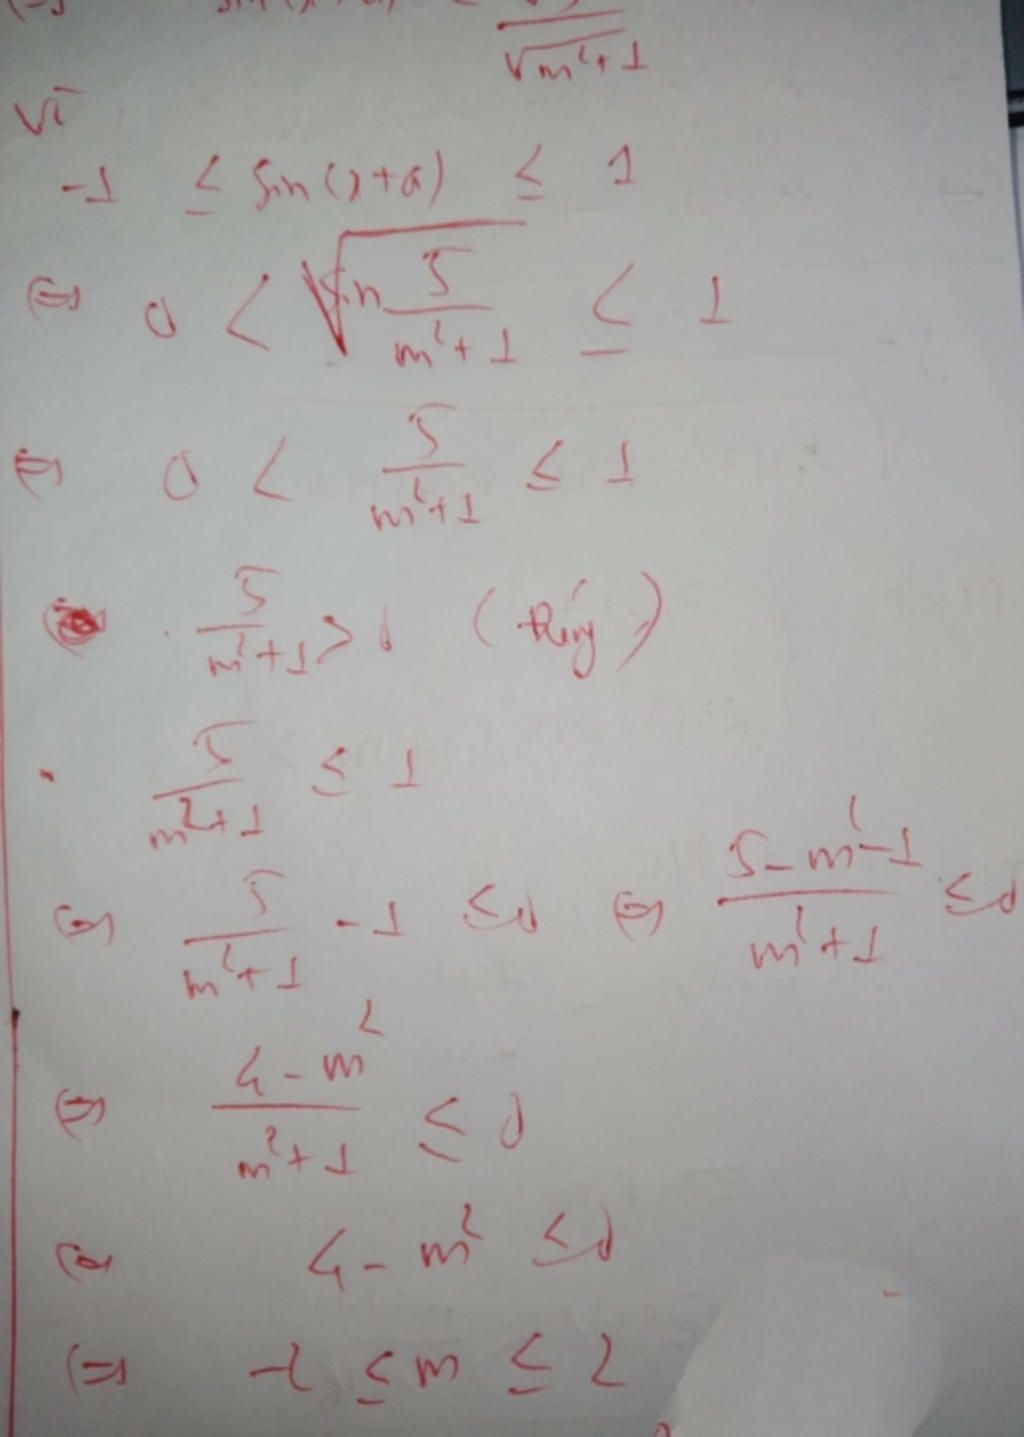 √m²+1
Vì
-1 ≤ sin(x+α) ≤ 1
(=) 0 < √ 5/m²+1 ≤ 1
(=) 0 < 5/m²+1 ≤ 1
. 5/m²+1 > 0 (đúng)
. 5/m²+1 ≤ 1
(=) 5/m²+1 - 1 ≤ 0 (=) 5-m²-1/m²+1 ≤ 0
(=) 4-m²/m²+1 ≤ 0
(=) 4-m² ≤ 0
(=) -2 ≤ m ≤ 2